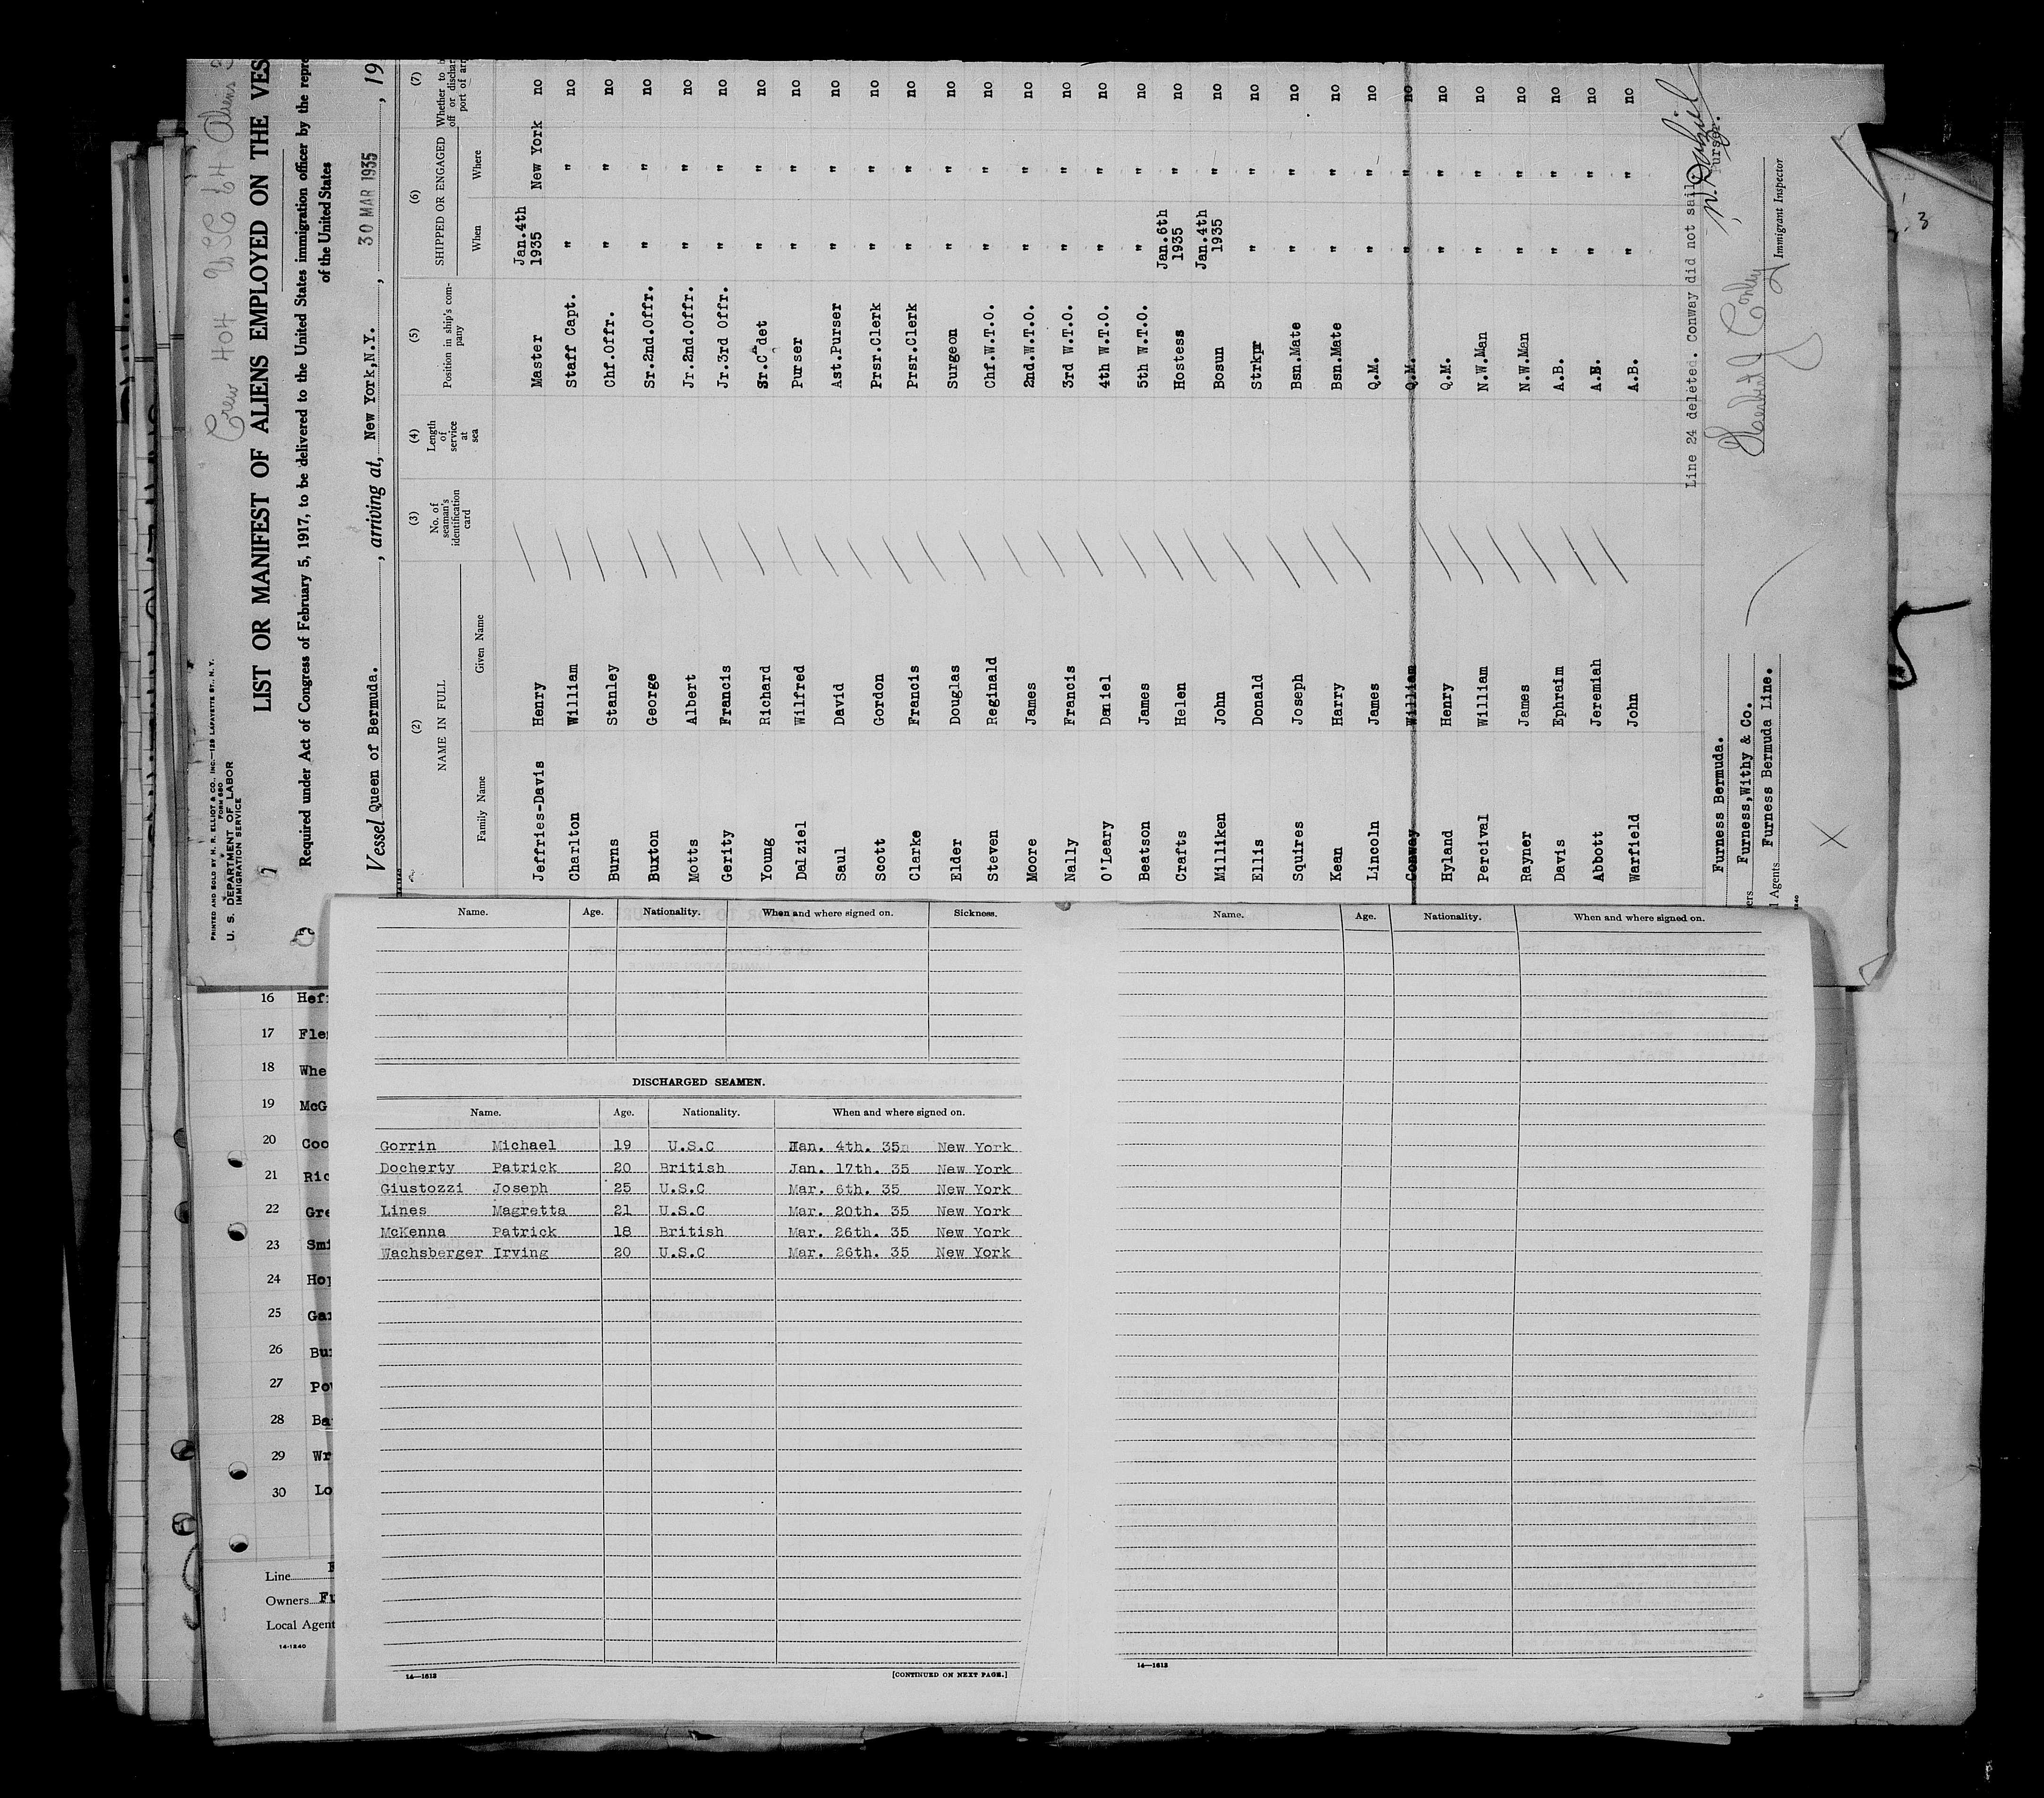 Crew 404 USC 64 Aliens
PRINTED AND SOLD BY H. R. ELLIOT & CO., INC.—129 LAFAYETTE ST., N. Y.
FORM 680
U. S. DEPARTMENT OF LABOR
IMMIGRATION SERVICE
LIST OR MANIFEST OF ALIENS EMPLOYED ON THE VES
Required under Act of Congress of February 5, 1917, to be delivered to the United States immigration officer by the repre
of the United States
Vessel Queen of Bermuda. , arriving at, New York,N.Y. , 30 MAR 1935 , 19
(2) (3) (4) (5) (6) (7)
NAME IN FULL No. of seaman's identification card Length of service at sea Position in ship's company SHIPPED OR ENGAGED Whether to b off or dischar port of arr
Family Name Given Name When Where
Jeffries-Davis Henry Master Jan.4th 1935 New York no
Charlton William Staff Capt. " " no
Burns Stanley Chf.Offr. " " no
Buxton George Sr.2nd.Offr. " " no
Motts Albert Jr.2nd.Offr. " " no
Gerity Francis Jr.3rd Offr. " " no
Young Richard Sr.Cadet " " no
Dalziel Wilfred Purser " " no
Saul David Ast.Purser " " no
Scott Gordon Prsr.Clerk " " no
Clarke Francis Prsr.Clerk " " no
Elder Douglas Surgeon " " no
Steven Reginald Chf.W.T.O. " " no
Moore James 2nd.W.T.O. " " no
Nally Francis 3rd W.T.O. " " no
O'Leary Daniel 4th W.T.O. " " no
Beatson James 5th W.T.O. " " no
Crafts Helen Hostess Jan.6th 1935 " no
Milliken John Bosun Jan.4th 1935 " no
Ellis Donald Strkpr " " no
Squires Joseph Bsn.Mate " " no
Kean Harry Bsn.Mate " " no
Lincoln James Q.M. " " no
Conway William Q.M. " " no
Hyland Henry Q.M. " " no
Percival William N.W.Man " " no
Rayner James N.W.Man " " no
Davis Ephraim A.B. " " no
Abbott Jeremiah A.B. " " no
Warfield John A.B. " " no
Line 24 deleted. Conway did not sail.
W. Dalziel
Purser.
Furness Bermuda.
Furness,Withy & Co.
Furness Bermuda Line.
Herbert Conley
Immigrant Inspector
ers
l Agents
1240
3
Name. Age. Nationality. When and where signed on. Sickness.
DISCHARGED SEAMEN.
Name. Age. Nationality. When and where signed on.
Gorrin Michael 19 U.S.C Jan. 4th. 35 New York
Docherty Patrick 20 British Jan. 17th. 35 New York
Giustozzi Joseph 25 U.S.C Mar. 6th. 35 New York
Lines Magretta 21 U.S.C Mar. 20th. 35 New York
McKenna Patrick 18 British Mar. 26th. 35 New York
Wachsberger Irving 20 U.S.C Mar. 26th. 35 New York
14—1613
[CONTINUED ON NEXT PAGE.]
Name. Age. Nationality. When and where signed on.
14—1613
16 Hef
17 Fle
18 Whe
19 McG
20 Coo
21 Ric
22 Gre
23 Smi
24 Hop
25 Gar
26 Bu
27 Pow
28 Ba
29 Wr
30 Lo
Line
Owners Fu
Local Agent
14-1240